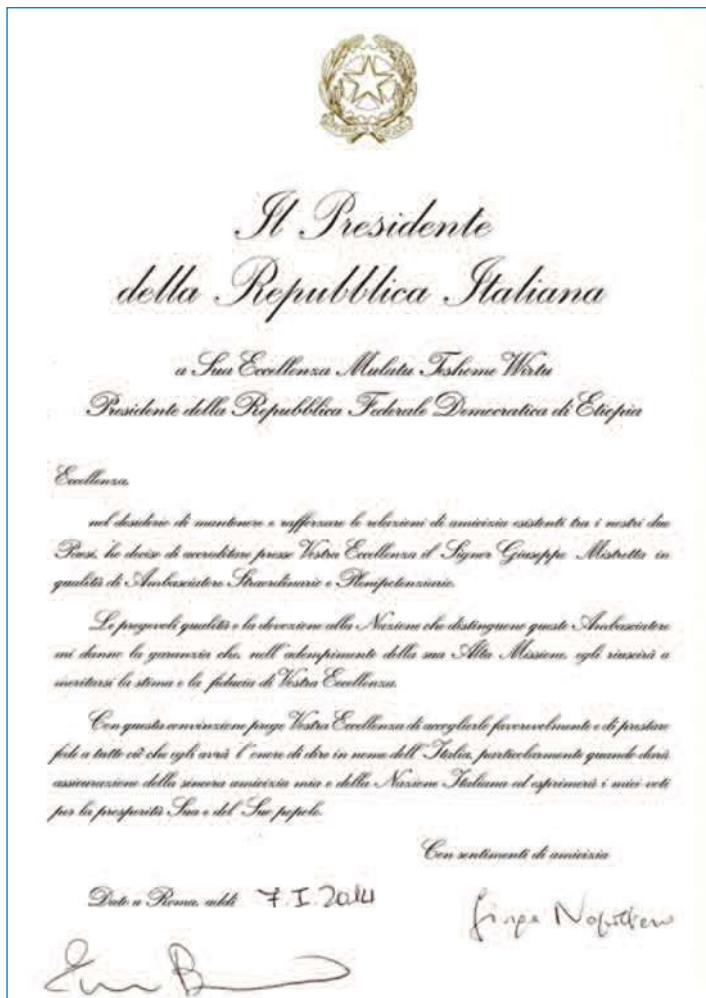 Il Presidente
della Repubblica Italiana
a Sua Eccellenza Mulatu Teshome Wirtu
Presidente della Repubblica Federale Democratica di Etiopia
Eccellenza,
nel desiderio di mantenere e rafforzare le relazioni di amicizia esistenti tra i nostri due
Paesi, ho deciso di accreditare presso Vostra Eccellenza il Signor Giuseppe Mistretta in
qualità di Ambasciatore Straordinario e Plenipotenziario.
Le pregevoli qualità e la devozione alla Nazione che distinguono questo Ambasciatore
mi danno la garanzia che, nell'adempimento della sua Alta Missione, egli riuscirà a
meritarsi la stima e la fiducia di Vostra Eccellenza.
Con questa convinzione prego Vostra Eccellenza di accoglierlo favorevolmente e di prestare
fede a tutto ciò che egli avrà l'onore di dire in nome dell'Italia, particolarmente quando darà
assicurazione della sincera amicizia mia e della Nazione Italiana ed esprimerà i miei voti
per la prosperità Sua e del Suo popolo.
Con sentimenti di amicizia
Dato a Roma, addì 7.I.2014